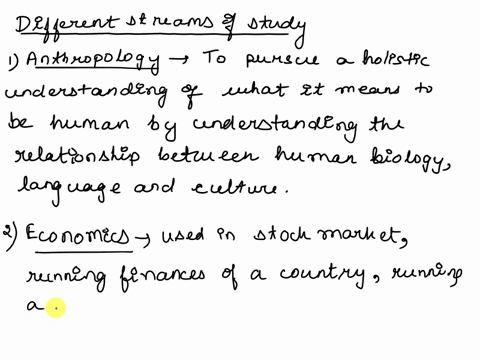 Different streams of study
1) Anthropology → To pursue a holistic
understanding of what it means to
be human by understanding the
relationship between human biology,
language and culture.
2) Economics → used in stock market,
running finances of a country, running
a